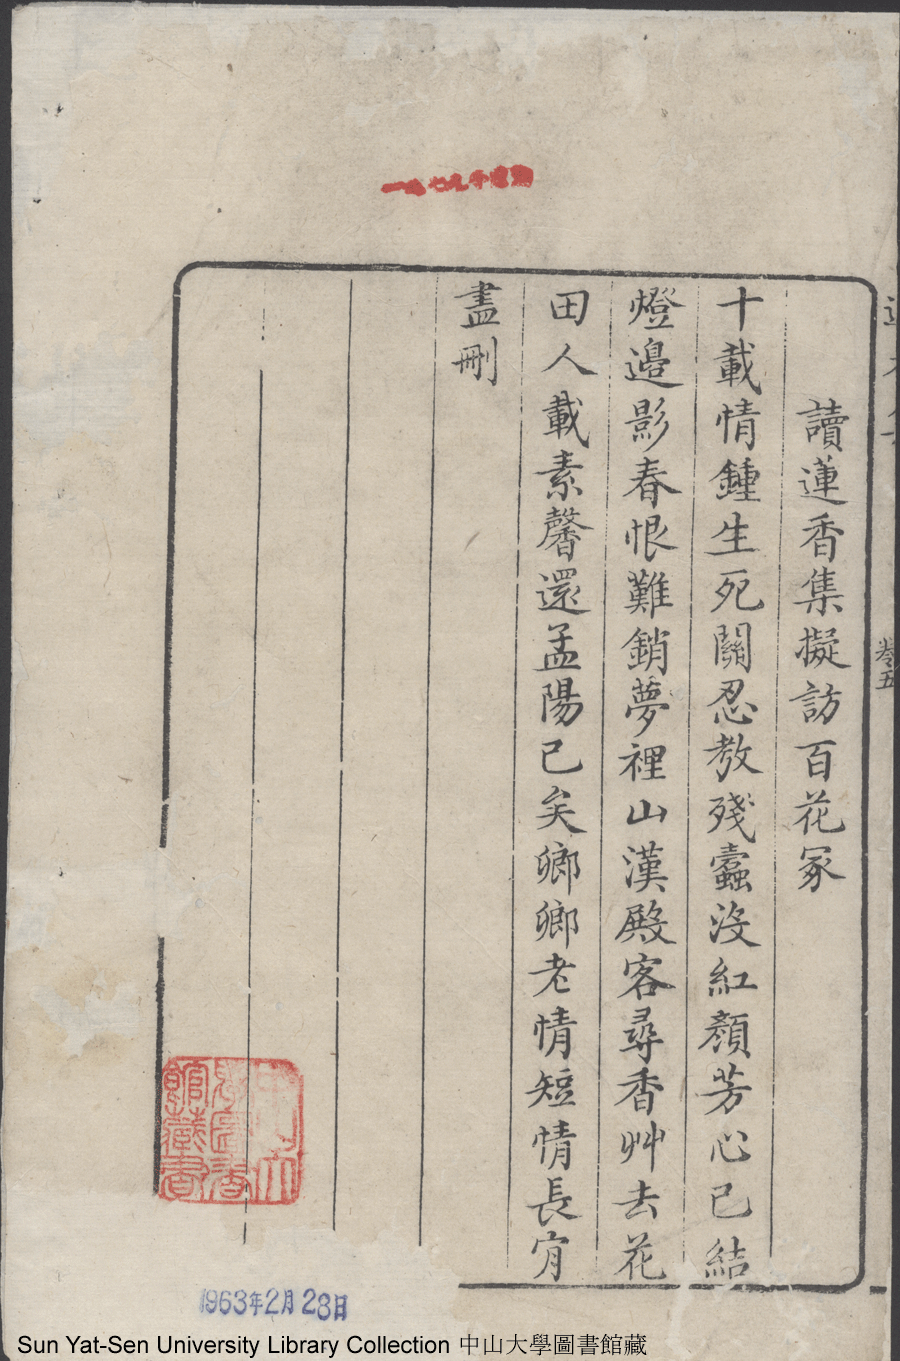 讀蓮香集擬訪百花冢
十載情鍾生死關忍教殘蠹没紅顏芳心已結
燈邉影春恨難銷夢裡山漢殿客尋香艸去花
田人載素馨還孟陽已矣卿卿老情短情長肎
盡刪
卷五
中山大學圖書館藏書
1963年2月28日
Sun Yat-Sen University Library Collection 中山大學圖書館藏